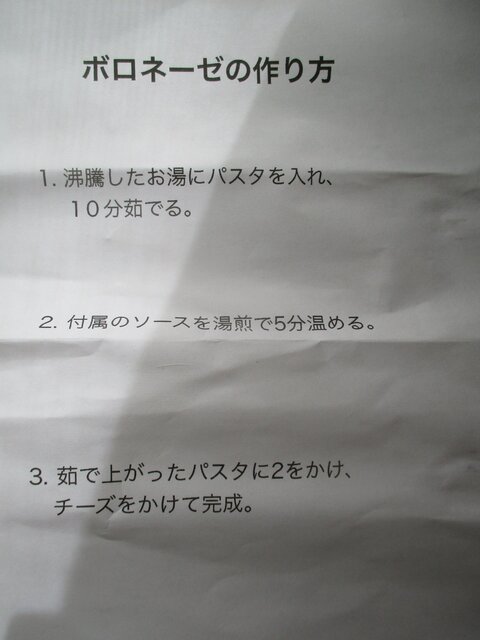 ボロネーゼの作り方
1. 沸騰したお湯にパスタを入れ、
１０分茹でる。
2. 付属のソースを湯煎で5分温める。
3. 茹で上がったパスタに2をかけ、
チーズをかけて完成。